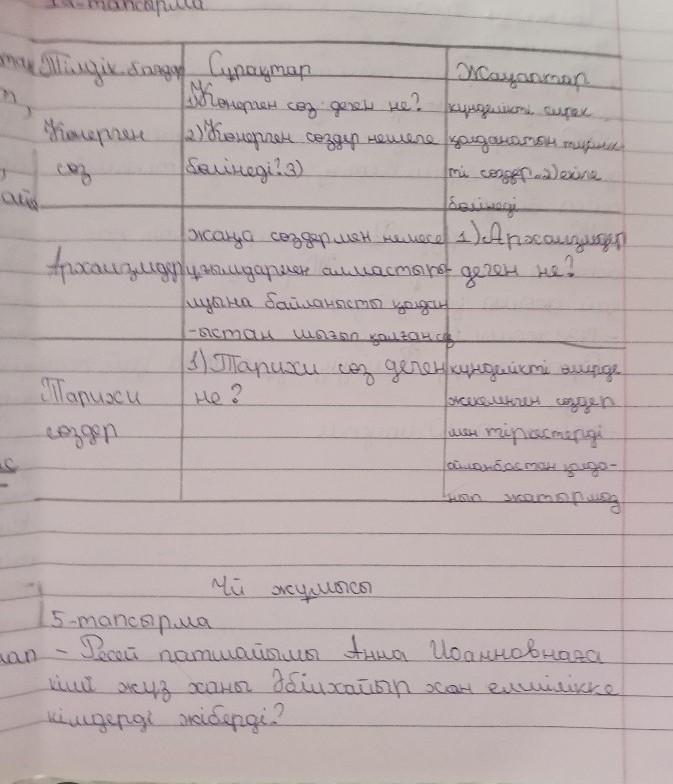 1а-тапсырма
Тілдік бағдар Сұрақтар Жауаптар
1) Көнерген сөз деген не? күнделікті сирек
Көнерген 2) Көнерген сөздер нешеге қолданатын тиркес
сөз бөлінеді? 3) ті сөздер. 2) екіге
бөлінеді
жаңа сөздермен немесе 1) Архаизмдер
Архаизмдер ұғымдармен алмастыры- деген не?
луына байланысты қолдан
-ыстан шығып қалған сөз
1) Тарихи сөз деген күнделікті өмірде
Тарихи не? сөздер
сөздер мен тіркестерді
айланбастан қолда-
нып жатырмыз
Үй жұмысы
5-тапсырма
- Ресей патшайымы Анна Иоанновнаға
кіші жүз ханы Әбілхайыр хан елшілікке
кімдерді жіберді?